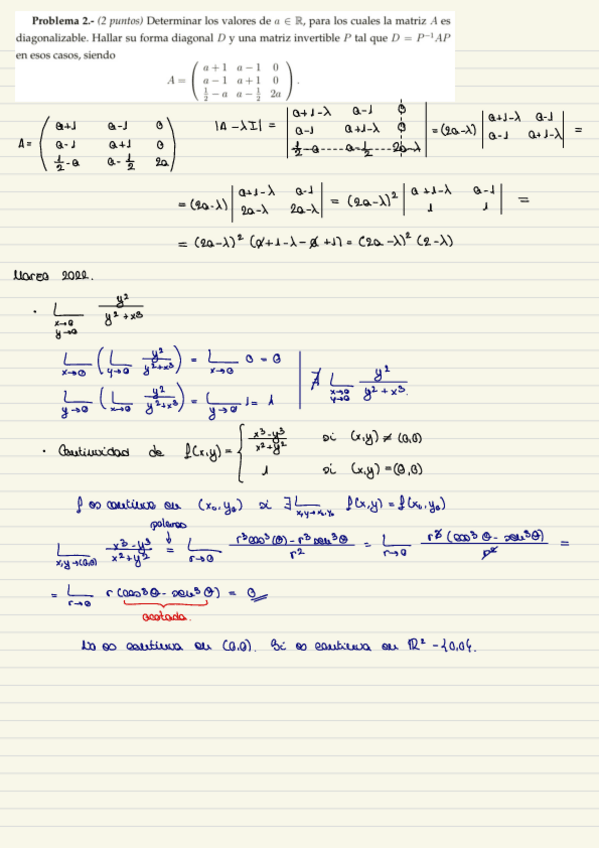 Problema 2.- (2 puntos) Determinar los valores de a ∈ ℝ, para los cuales la matriz A es
diagonalizable. Hallar su forma diagonal D y una matriz invertible P tal que D = P⁻¹AP
en esos casos, siendo
A = ( a+1 a−1 0
a−1 a+1 0
1/2−a a−1/2 2a ).
A = ( a+1 a-1 0 ; a-1 a+1 0 ; 1/2-a a-1/2 2a ) |A-λI| = | a+1-λ a-1 0 ; a-1 a+1-λ 0 ; 1/2-a a-1/2 2a-λ | = (2a-λ) | a+1-λ a-1 ; a-1 a+1-λ | =
= (2a-λ) | a+1-λ a-1 ; 2a-λ 2a-λ | = (2a-λ)² | a+1-λ a-1 ; 1 1 | =
= (2a-λ)² (a+1-λ-a+1) = (2a-λ)² (2-λ)
Marzo 2022.
· L x→0 y→0 y²/(y²+x³)
L x→0 ( L y→0 y²/(y²+x³) ) = L x→0 0 = 0
L y→0 ( L x→0 y²/(y²+x³) ) = L y→0 1 = 1
∄ L x→0 y→0 y²/(y²+x³).
· Continuidad de f(x,y) = { (x³-y³)/(x²+y²) si (x,y) ≠ (0,0)
1 si (x,y) = (0,0)
f es continua en (x₀,y₀) si ∃ L x,y→x₀,y₀ f(x,y) = f(x₀,y₀)
polares
L x,y→(0,0) (x³-y³)/(x²+y²) = L r→0 (r³cos³(θ) - r³sen³θ)/r² = L r→0 r³(cos³θ - sen³θ)/r² =
= L r→0 r(cos³θ - sen³θ) = 0
acotada.
No es continua en (0,0). Si es continua en ℝ² - {0,0}.